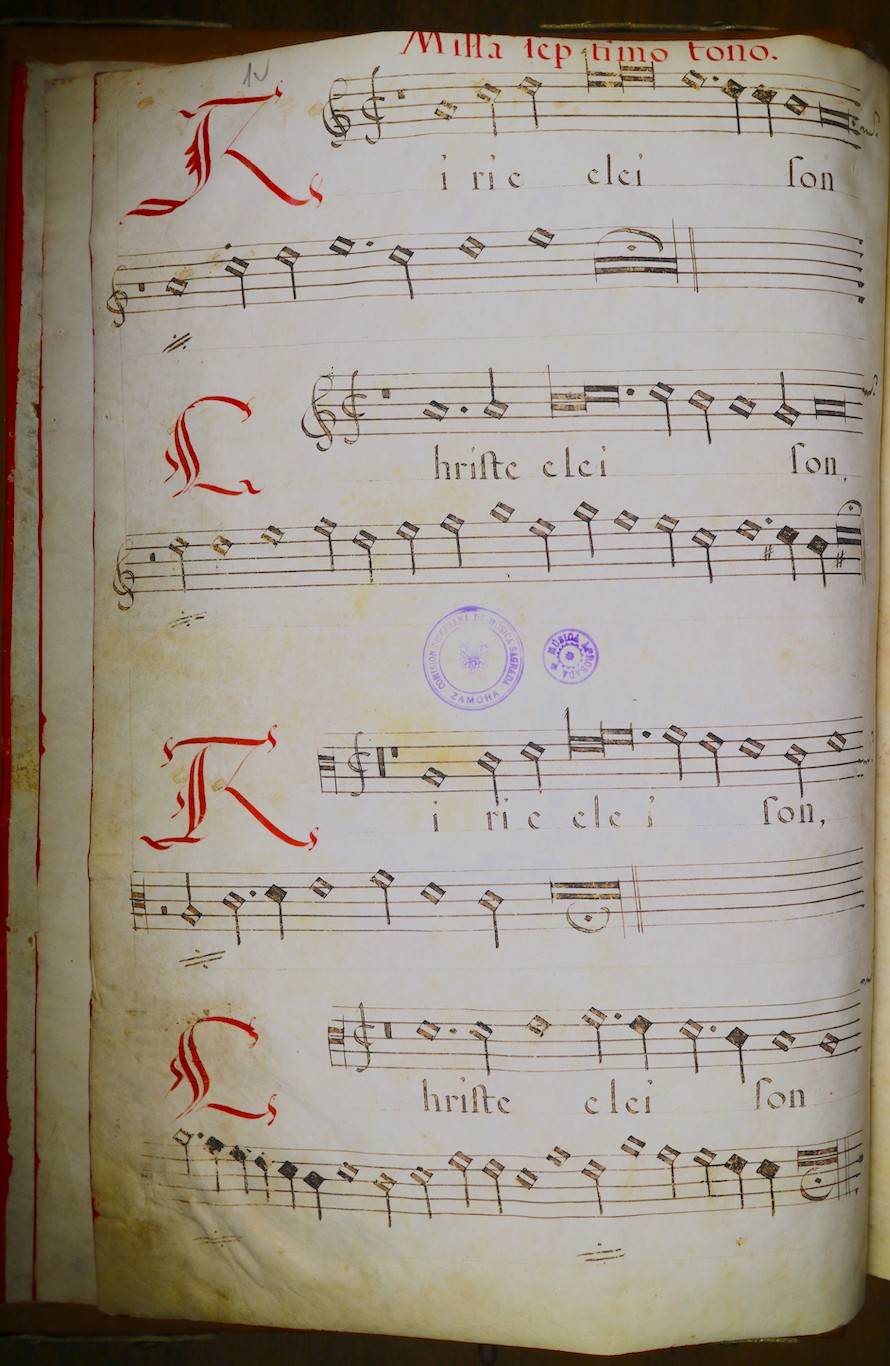 Missa septimo tono.
Kirie elei son
Christe elei son,
COMISION DIOCESANA DE MUSICA SAGRADA
ZAMORA
MÚSICA APROBADA
Ki rie elei son,
Christe elei son